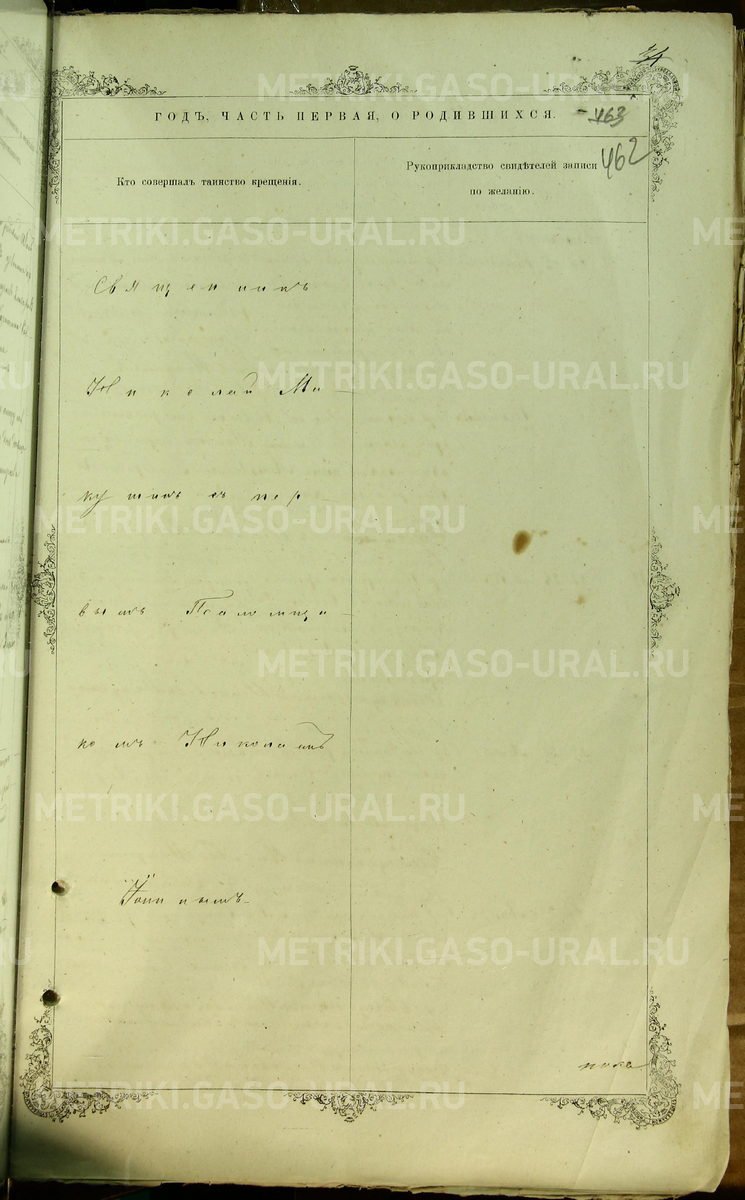 ГОДЪ, ЧАСТЬ ПЕРВАЯ, О РОДИВШИХСЯ.
463
462
Кто совершалъ таинство крещенія.
Рукоприкладство свидѣтелей записи
по желанію.
Священникъ
Николай Ма-
кушинъ съ пер-
вымъ Псаломщи-
комъ Николаемъ
METRIKI.GASO-URAL.RU